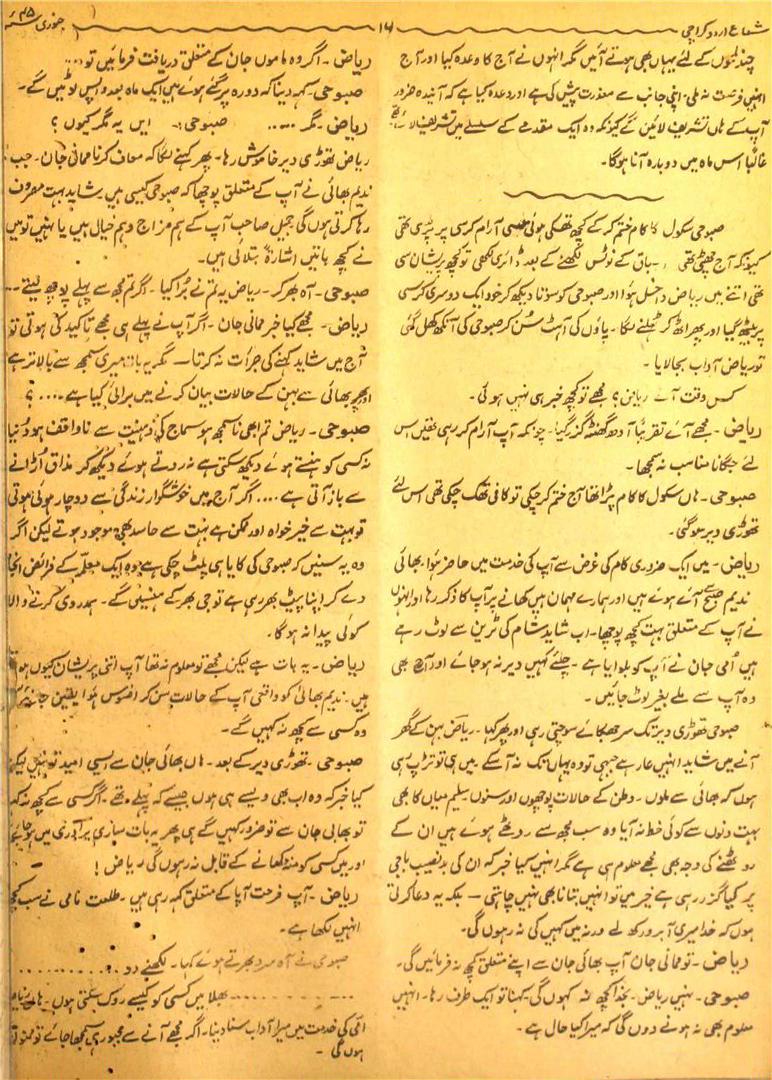 شعاع اردو کراچی
۱۶
جنوری ۴۵ء
چند لمحوں کے لئے یہاں بھی ہوتے آئیں مگر انہوں نے آج کا وعدہ کیا اور آج
انہیں فرصت نہ ملی۔ اپنی جانب سے معذرت پیش کی ہے اور وعدہ کیا ہے کہ آئندہ ضرور
آپ کے ہاں تشریف لائیں گے کیونکہ وہ ایک مقدمے کے سلسلے میں تشریف لائے تھے
غالباً اس ماہ میں دوبارہ آنا ہوگا۔
صبوحی سکول کا کام ختم کر کے کچھ تھکی ہوئی سی آرام کرسی پر پڑی تھی
کیونکہ آج چھٹی تھی۔ باقی کے نوٹس لکھنے کے بعد ڈائری لکھی تو کچھ پریشان سی
تھی اتنے میں ریاض داخل ہوا اور صبوحی کو سوتا دیکھ کر خود ایک دوسری کرسی
پر بیٹھ گیا اور پھر اٹھ کر ٹہلنے لگا۔ پاؤں کی آہٹ سُن کر صبوحی کی آنکھ کھل گئی
تو ریاض آداب بجا لایا۔
کس وقت آئے ریاض؟ مجھے تو کچھ خبر ہی نہیں ہوئی۔
ریاض۔ مجھے آئے تقریباً آدھ گھنٹہ گزر گیا۔ چونکہ آپ آرام کر رہی تھیں اس
لئے جگانا مناسب نہ سمجھا۔
صبوحی۔ ہاں سکول کا کام پڑا تھا آج ختم کر چکی تو کافی تھک چکی تھی اس لئے
تھوڑی دیر سو گئی۔
ریاض۔ میں ایک ضروری کام کی غرض سے آپ کی خدمت میں حاضر ہوا۔ بھائی
ندیم صبح آئے ہوئے ہیں اور ہمارے مہمان ہیں کھانے پر آپ کا ذکر رہا اور انہوں
نے آپ کے متعلق بہت کچھ پوچھا۔ اب شاید شام کی ٹرین سے لوٹ رہے
ہیں اُمی جان نے آپ کو بلوایا ہے۔ چلئے کہیں دیر نہ ہو جائے اور آج بھی
وہ آپ سے ملے بغیر لوٹ جائیں۔
صبوحی تھوڑی دیر تک سر جھکائے سوچتی رہی اور پھر کہا۔ ریاض بہن کے گھر
آنے میں شاید انہیں عار ہے جبھی تو وہ یہاں تک نہ آ سکے۔ میں ہی تو تڑپ رہی
ہوں کہ بھائی سے ملوں۔ وطن کے حالات پوچھوں اور سنوں سلیم میاں کا بھی
بہت دنوں سے کوئی خط نہ آیا وہ سب مجھ سے روٹھے ہوئے ہیں ان کے
روٹھنے کی وجہ بھی مجھے معلوم ہی ہے مگر انہیں کیا خبر کہ ان کی بدنصیب باجی
پر کیا گزر رہی ہے خیر میں تو انہیں بتانا بھی نہیں چاہتی — بلکہ یہ دعا کرتی
ہوں کہ خدا میری آبرو رکھ لے ورنہ میں کہیں کی نہ رہوں گی۔
ریاض۔ تو ممانی جان آپ بھائی جان سے اپنے متعلق کچھ نہ فرمائیں گی۔
صبوحی۔ نہیں ریاض۔ بخدا کچھ نہ کہوں گی۔ کہنا تو ایک طرف رہا۔ انہیں
معلوم بھی نہ ہونے دوں گی کہ میرا کیا حال ہے۔
ریاض۔ اگر وہ ماموں جان کے متعلق دریافت فرمائیں تو...
صبوحی۔ کہہ دینا کہ دورہ پر گئے ہوئے ہیں ایک ماہ بعد واپس لوٹیں گے۔
ریاض۔ مگر ..... صبوحی:۔ ایں یہ مگر کیوں؟
ریاض تھوڑی دیر خاموش رہا۔ پھر کہنے لگا کہ معاف کرنا ممانی جان۔ جب
ندیم بھائی نے آپ کے متعلق پوچھا کہ صبوحی کیسی ہیں شاید بہت مصروف
رہا کرتی ہوں گی جمیل صاحب آپ کے ہم مزاج و ہم خیال ہیں یا نہیں تو میں
نے کچھ باتیں اشارۃً بتلائی ہیں۔
صبوحی۔ آہ بھر کر۔ ریاض یہ تم نے بُرا کیا۔ اگر تم مجھ سے پہلے پوچھ لیتے..
ریاض۔ مجھے کیا خبر ممانی جان۔ اگر آپ نے پہلے ہی مجھے تاکید کی ہوتی تو
آج میں شاید کہنے کی جرأت نہ کرتا — مگر یہ بات میری سمجھ سے بالاتر ہے
بھائی سے بہن کے حالات بیان کرنے میں برائی کیا ہے...؟
صبوحی۔ ریاض تم ابھی ناسمجھ ہو سماج کی ذہنیت سے ناواقف ہو دنیا
نہ کسی کو ہنستے ہوئے دیکھ سکتی ہے نہ روتے ہوئے دیکھ کر مذاق اُڑانے
سے باز آتی ہے.... اگر آج میں خوشگوار زندگی سے دو چار ہوئی ہوتی
تو بہت سے خیر خواہ اور ممکن ہے بہت سے حاسد بھی موجود ہوتے لیکن اگر
وہ یہ سنیں کہ صبوحی کی کایا ہی پلٹ چکی ہے وہ ایک معلّمہ کے فرائض انجام
دے کر اپنا پیٹ بھر رہی ہے تو جی بھر کے ہنسیں گے۔ ہمدردی کرنے والا
کوئی پیدا نہ ہوگا۔
ریاض۔ یہ بات ہے لیکن مجھے تو معلوم نہ تھا آپ اتنی پریشان کیوں ہو
ہیں۔ ندیم بھائی کو واقعی آپ کے حالات سن کر افسوس ہوا یقین جانئے
وہ کسی سے کچھ نہ کہیں گے۔
صبوحی۔ تھوڑی دیر کے بعد۔ ہاں بھائی جان سے ایسی امید تو نہیں لیکن
کیا خبر کہ وہ اب بھی ویسے ہی ہوں جیسے کہ پہلے تھے۔ اگر کسی سے کچھ نہ کہا
تو بھابی جان سے تو ضرور کہیں گے ہی پھر یہ بات ساری برادری میں
اور میں کسی کو منہ دکھانے کے قابل نہ رہوں گی ریاض!
ریاض۔ آپ فرحت آپا کے متعلق کہہ رہی ہیں۔ طلعت نامی نے سب کچھ
انہیں لکھا ہے۔
صبوحی نے آہ سرد بھرتے ہوئے کہا۔ لکھنے دو ..........
.......... بھلا میں کسی کو کیسے روک سکتی ہوں۔ ہاں ریاض
امی کی خدمت میں میرا آداب سنا دینا۔ اگر مجھے آنے سے مجبور ہی سمجھا جائے تو ممنون
ہوں گی۔